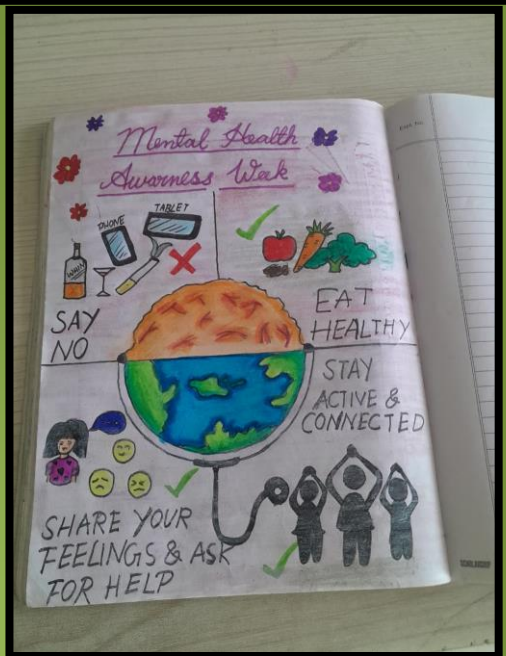 Mental Health
Awarness Week
PHONE
TABLET
SAY
NO
EAT
HEALTHY
STAY
ACTIVE &
CONNECTED
SHARE YOUR
FEELINGS & ASK
FOR HELP